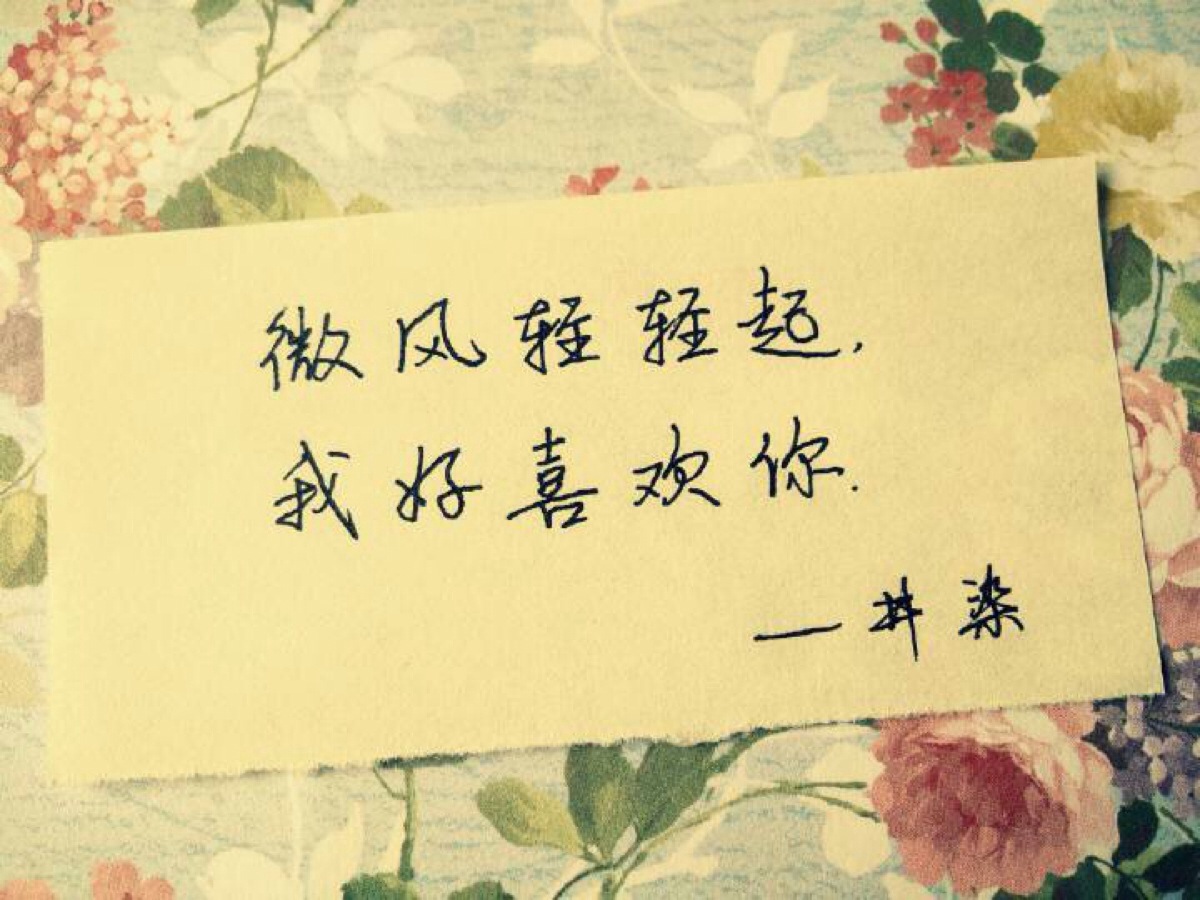 微风轻轻起,
我好喜欢你.
—井染